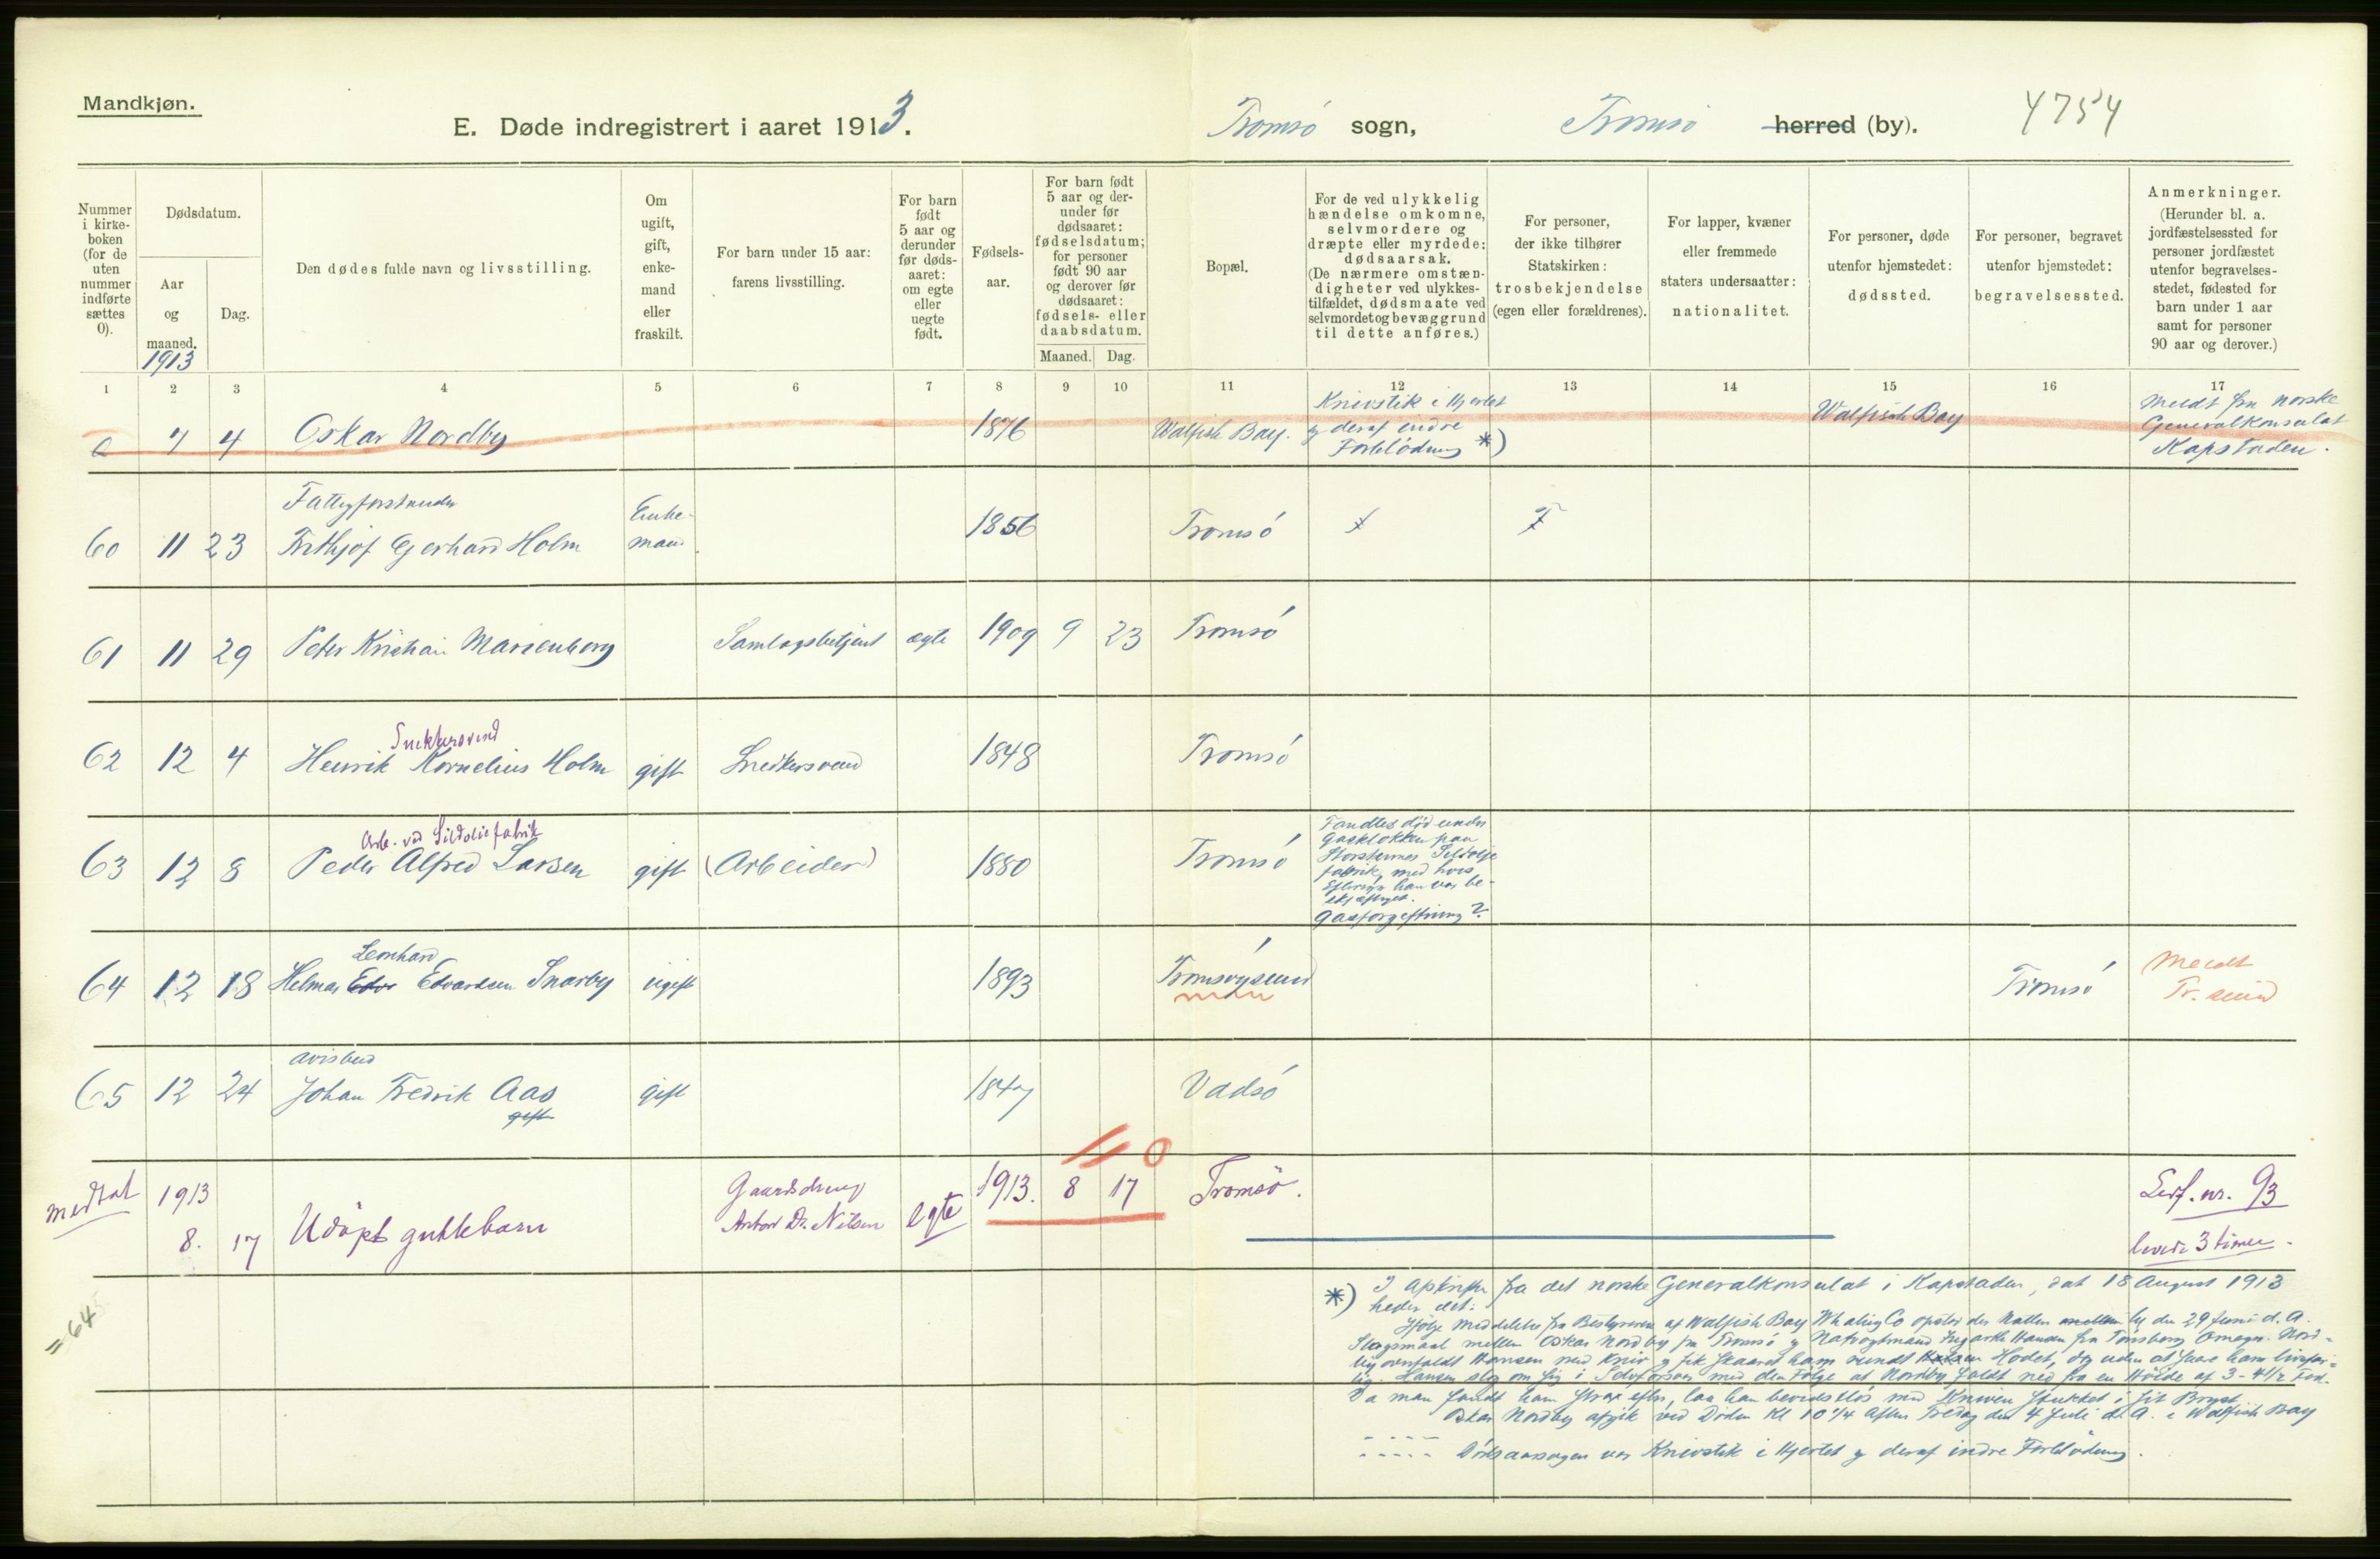 Mandkjøn.
E. Døde indregistrert i aaret 1913.
Tromsö sogn,
Tromsö herred (by).
4754
Nummer i kirkeboken (for de uten nummer indførte sættes 0).
Dødsdatum.
Aar og maaned.
1913
Dag.
Den dødes fulde navn og livsstilling.
Om ugift, gift, enkemand eller fraskilt.
For barn under 15 aar: farens livsstilling.
For barn født 5 aar og derunder før dødsaaret: om egte eller uegte født.
Fødselsaar.
For barn født 5 aar og derunder før dødsaaret: fødselsdatum; for personer født 90 aar og derover før dødsaaret: fødsels- eller daabsdatum.
Maaned. Dag.
Bopæl.
For de ved ulykkelig hændelse omkomne, selvmordere og dræpte eller myrdede: dødsaarsak. (De nærmere omstændigheter ved ulykkestilfældet, dødsmaate ved selvmordet og bevæggrund til dette anføres.)
For personer, der ikke tilhører Statskirken: trosbekjendelse (egen eller forældrenes).
For lapper, kvæner eller fremmede staters undersaatter: nationalitet.
For personer, døde utenfor hjemstedet: dødssted.
For personer, begravet utenfor hjemstedet: begravelsessted.
Anmerkninger. (Herunder bl. a. jordfæstelsessted for personer jordfæstet utenfor begravelsesstedet, fødested for barn under 1 aar samt for personer 90 aar og derover.)
1 2 3 4 5 6 7 8 9 10 11 12 13 14 15 16 17
0 7 4 Oskar Nordby 1876 Walfish Bay. Knivstik i Hjertet og deraf indre Forblödning *) Walfisch Bay Meldt fra norske Generalkonsulat Kapstaden.
Fattigforstander
60 11 23 Frithjof Gerhard Holm Enkemand. 1856 Tromsö
61 11 29 Peter Kristian Marienborg Samlagsbetjent egte 1909 9 23 Tromsö
Snekkersvend
62 12 4 Henrik Kornelius Holm gift Snedkersvend 1848 Tromsö
Arb. ved Sildoliefabrik
63 12 8 Peder Alfred Larsen gift (Arbeider) 1880 Tromsö Fandtes död under Gasklokken paa Storsternes Sildolje fabrik, med hvis han var beskjæftiget. Gasforgiftning?
Leonhard
64 12 18 Helmar Edv Edvardsen Snarby ugift 1893 Tromsöysund Tromsö Meldt Tr. sund
Avisbud
65 12 24 Johan Fredrik Aas gift 1847 Vadsö
gift
110
medtat 1913 8. 17 Udöpt guttebarn Gaardsdreng Anton Dr. Nilsen egte 1913. 8 17 Tromsö. Levf. nr. 93 levede 3 timer.
= 64
*) I Apskrifter fra det norske Generalkonsulat i Kapstaden, dat 18 August 1913
heder det:
Ifölge Meddelelse fra Bestyreren af Walfish Bay Whaling Co opstod der Natten mellem den 29 Juni d. A.
Slagsmaal mellem Oskar Nordby fra Tromsö og Hansen fra Tönsberg Omegn. Nord-
by overfaldt Hansen med Kniv og fik Skaaret ham rundt Hodet, dog uden at Saare ham livsfar-
lig. Hansen slog om sig i Selvforsvar med den Fölge at Nordby faldt ned fra en Höide af 3-4½ Fod.
Da man fandt ham strax efter, laa han bevidstlös med Kniven stukket i sit Bryst
Oskar Nordby afgik ved Döden Kl 10¼ Aften Fredag den 4 Juli d. A. i Walfish Bay
Dödsaarsagen var Knivstik i Hjertet og deraf indre Forblödning.